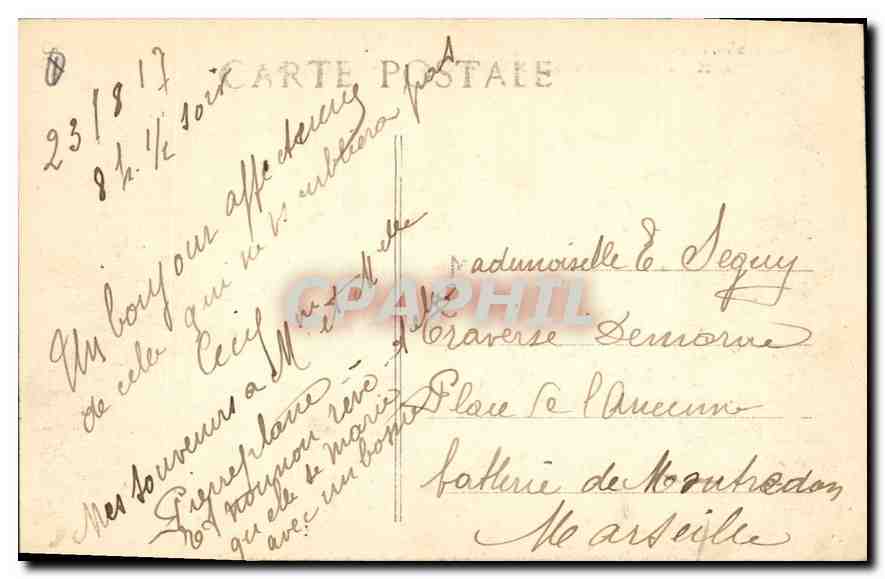 CARTE POSTALE
23/8 17
8 h. 1/2 soir
Un bonjour affectueux
de celle qui ne vs oubliera pas
Cécile
Mes souvenirs à Mme et Melle
Pierreplane
et nounou rêve-t-elle
qu'elle se marie
avec un bossu
Mademoiselle E. Seguy
Traverse
Place de l'Ancienne
batterie de Montredon
Marseille
CPAPHIL